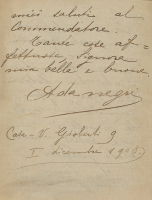 miei saluti al
Commendatore.
Tante cose af=
fettuose, Signora
mia bella e buona.
Ada Negri
Via V. Gioberti 9
I dicembre 1905